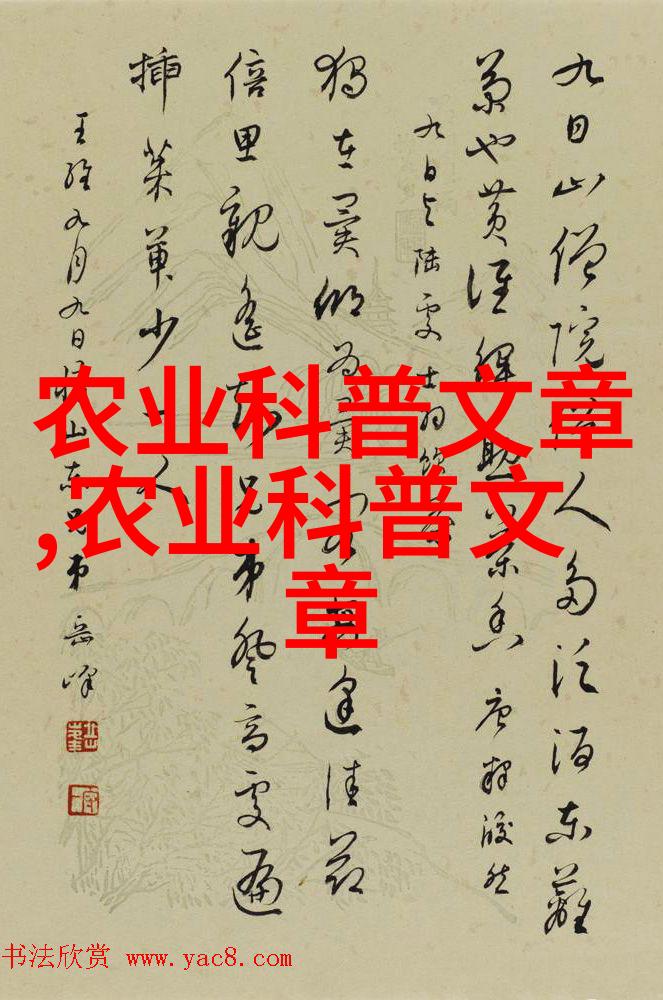 九日山僧院俗人多泛酒东籬
菊也黄谁解助茶香 唐释皎然
九日与陆處士羽饮茶
独在異鄉为異客每逢佳节
倍思親遥知兄弟登高處遍
插茱萸少一人
王维九月九日忆山东兄弟 岳峰
农业科普文章
,农业科普文
章
书法欣赏 www.yac8.com